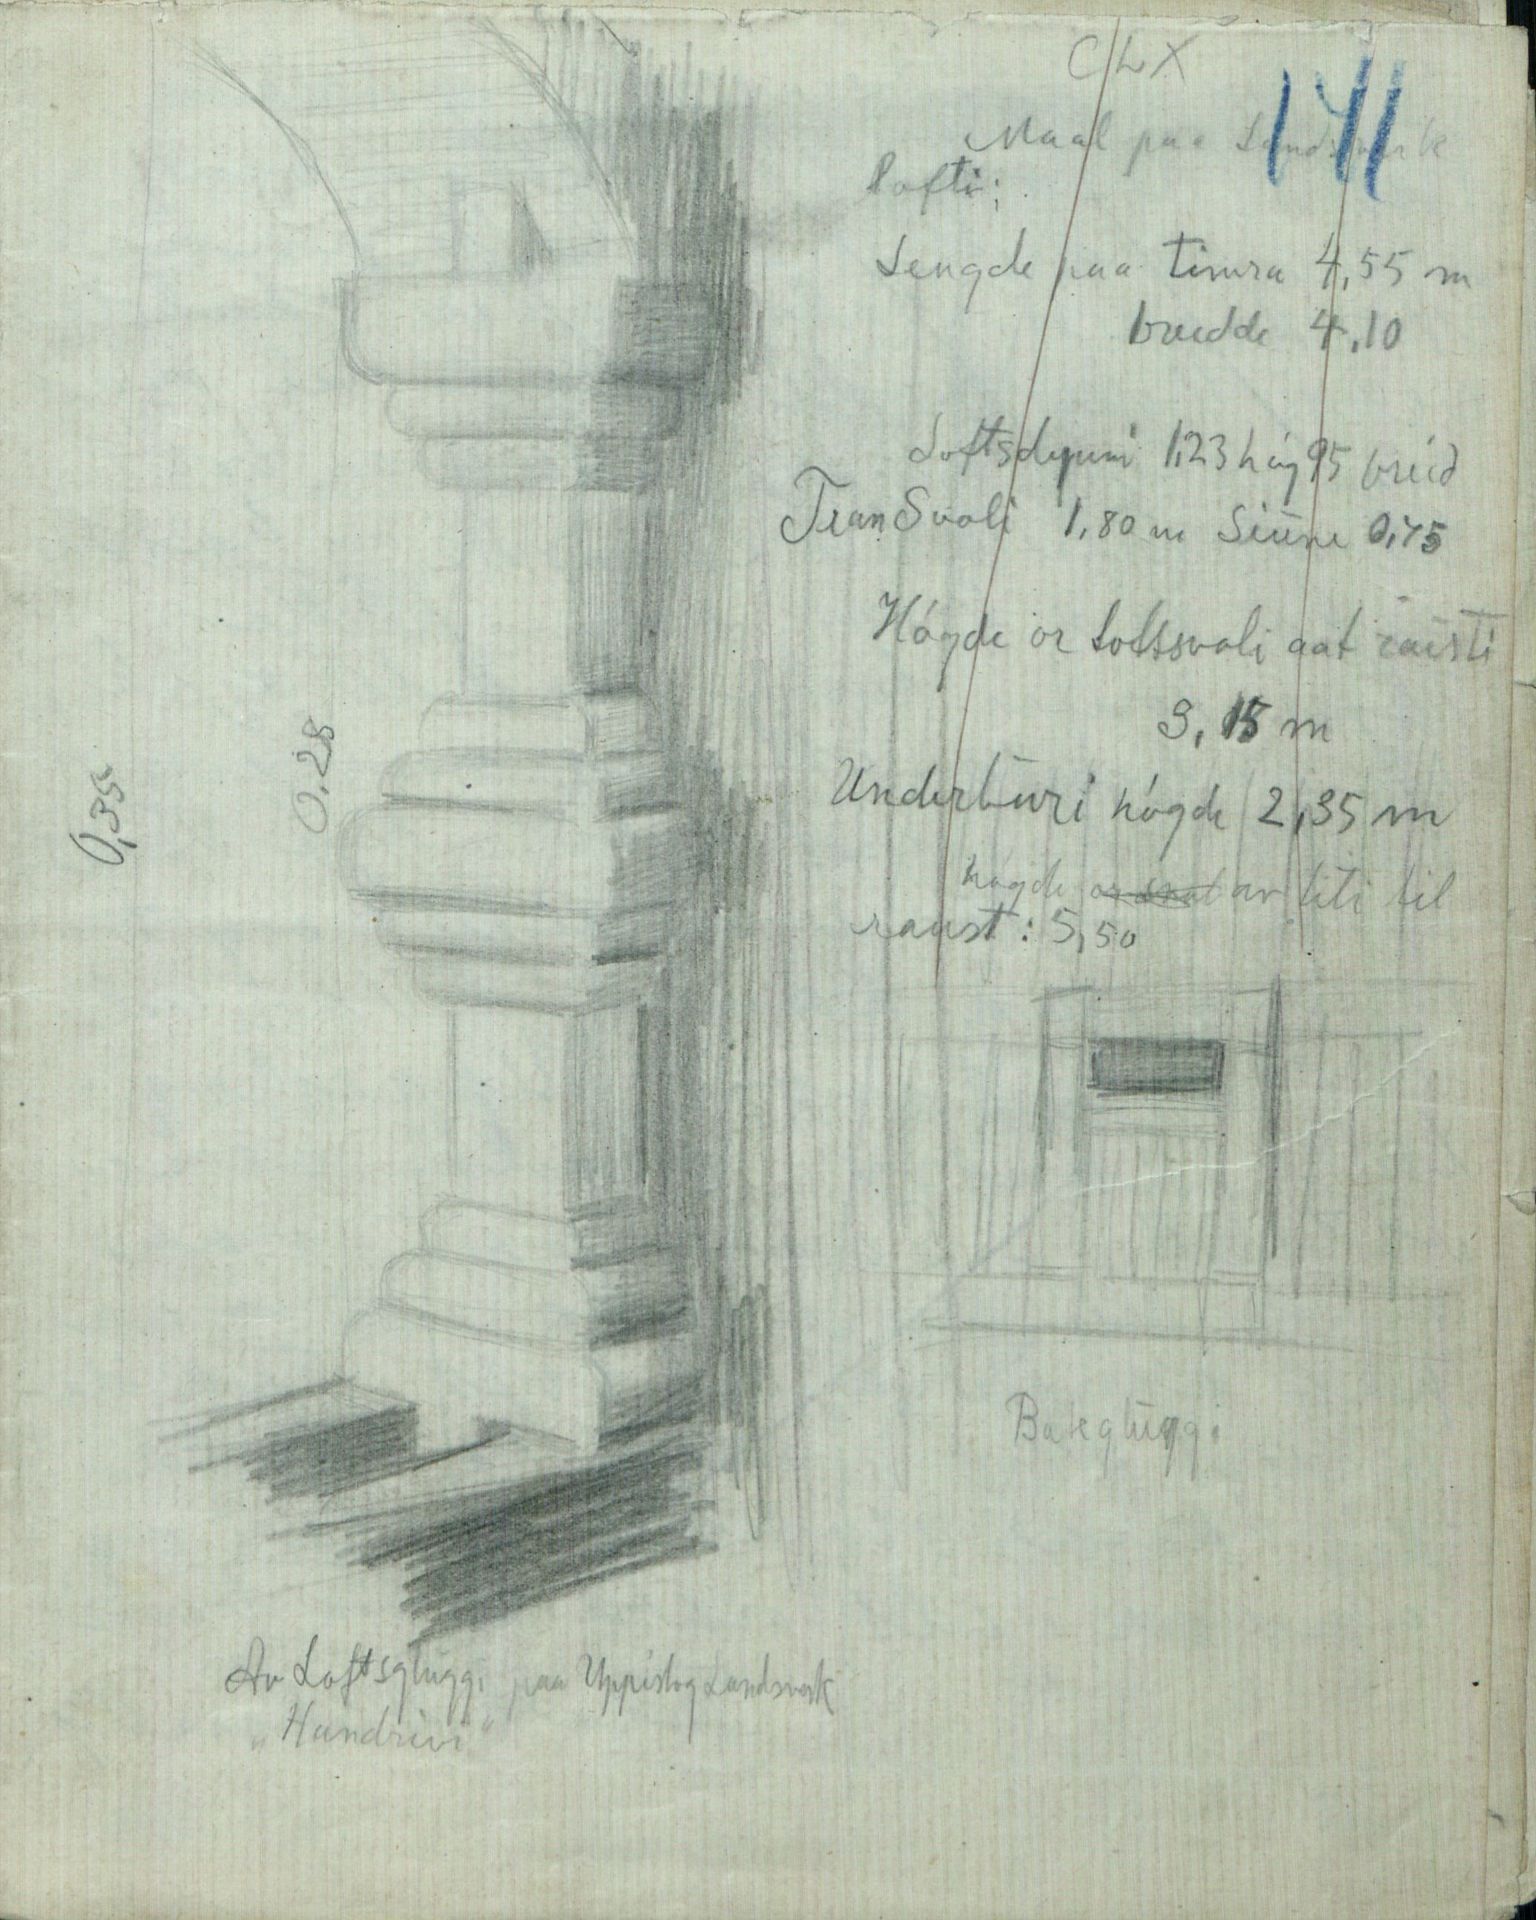 CLX
141
Maal paa Landsverk
lofti:
Lengde paa timra 4,55 m
breidde 4,10
Loftsdyuni 1,23 høg 95 breid
Fram Svali 1,80 m Siune 0,75
Høgde or Loftssvali aat raısti
3,15 m
Underbūri høgde 2,35 m
høgde or sval av liti til
raust: 5,50
0,35
0.28
Bakglugg
Av Loftsgluggi paa Uppistog Landsverk
„Handrivi"